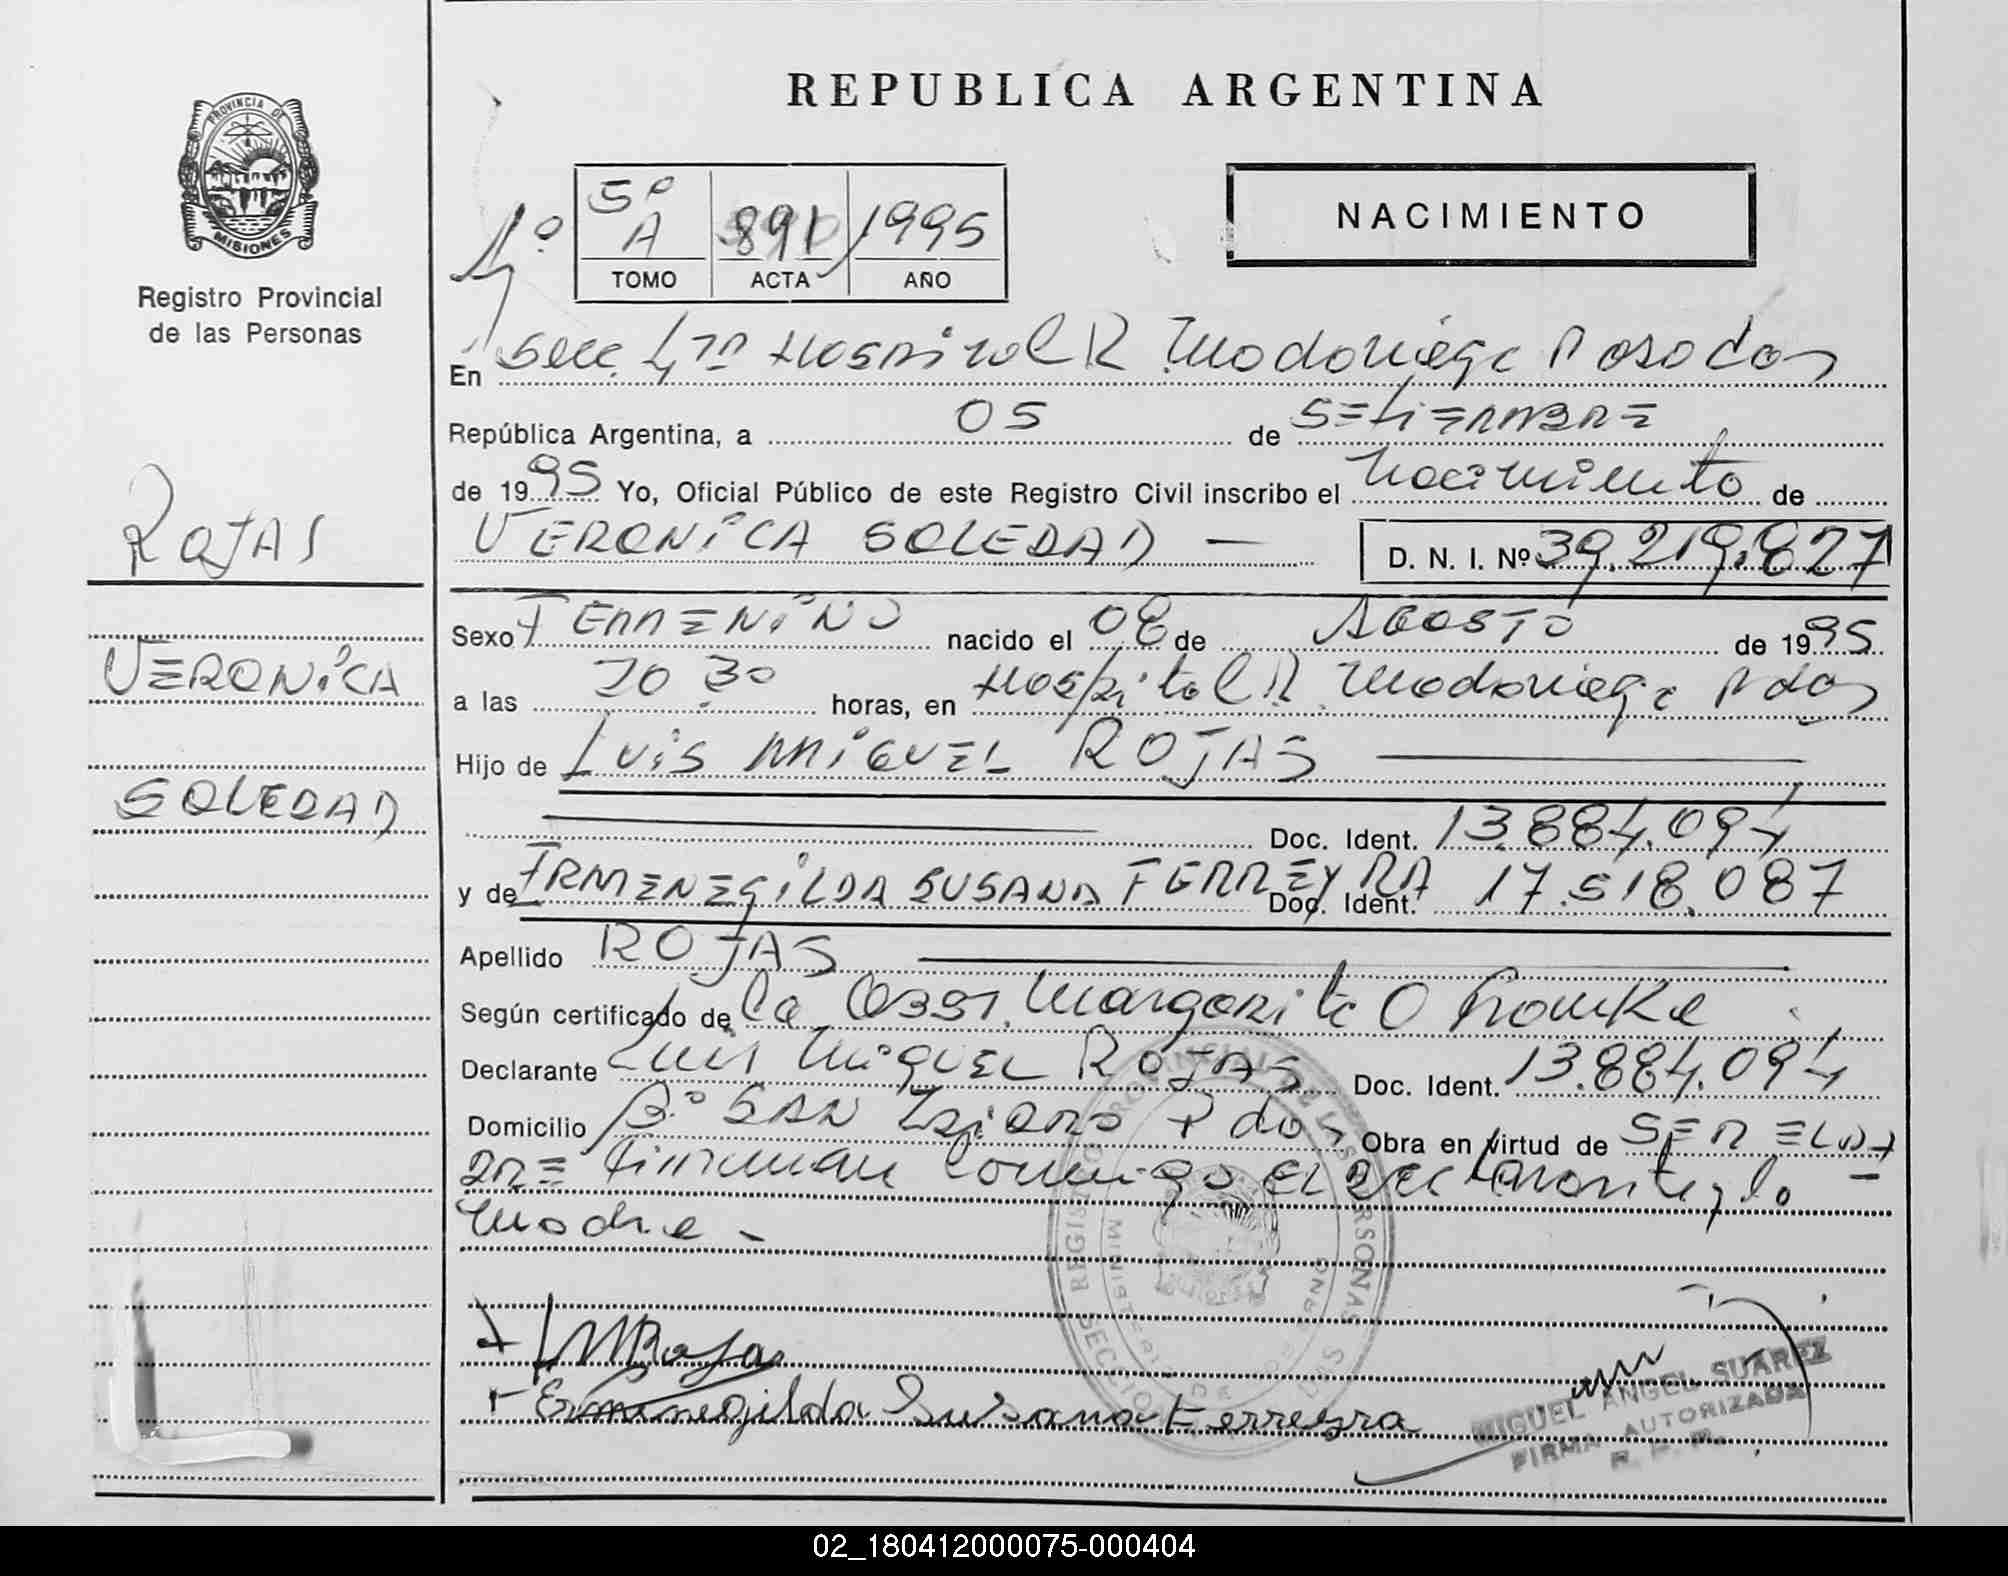 PROVINCIA DE
MISIONES
Registro Provincial
de las Personas
ROJAS
VERONICA
SOLEDAD
REPUBLICA ARGENTINA
1º
5º
A 891 1995
TOMO ACTA AÑO
NACIMIENTO
En Secc 4ta Hospital R Madariaga Posadas
República Argentina, a 05 de SETIEMBRE
de 1995 Yo, Oficial Público de este Registro Civil inscribo el Nacimiento de
VERONICA SOLEDAD — D. N. I. Nº 39.219.827
Sexo FEMENINO nacido el 08 de AGOSTO de 1995
a las 30 horas, en Hospital R. Madariaga Pdas
Hijo de LUIS MIGUEL ROJAS
Doc. Ident. 13.884.094
y de IRMENEGILDA SUSANA FERREYRA Doc. Ident. 17.518.087
Apellido ROJAS
Según certificado de la Obst. Margarita O
Declarante Luis Miguel ROJAS Doc. Ident. 13.884.094
Domicilio Bº SAN Isidro Pdas Obra en virtud de SER EL PA
DRE firman conmigo EL DECLARANTE y la -
Madre -
LMRojas
Ermenegilda Susana Ferreyra
REGISTRO PROVINCIAL DE LAS PERSONAS
MINISTERIO DE GOBIERNO
SECCION
MIGUEL ANGEL SUAREZ
FIRMA AUTORIZADA
R. P. P.
02_180412000075-000404